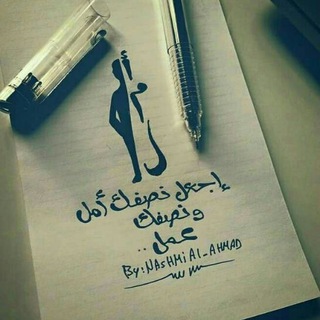 أمل
إجعل نصفك أمل
ونصفك
عمل ..
By: NASHMI AL-AHMAD